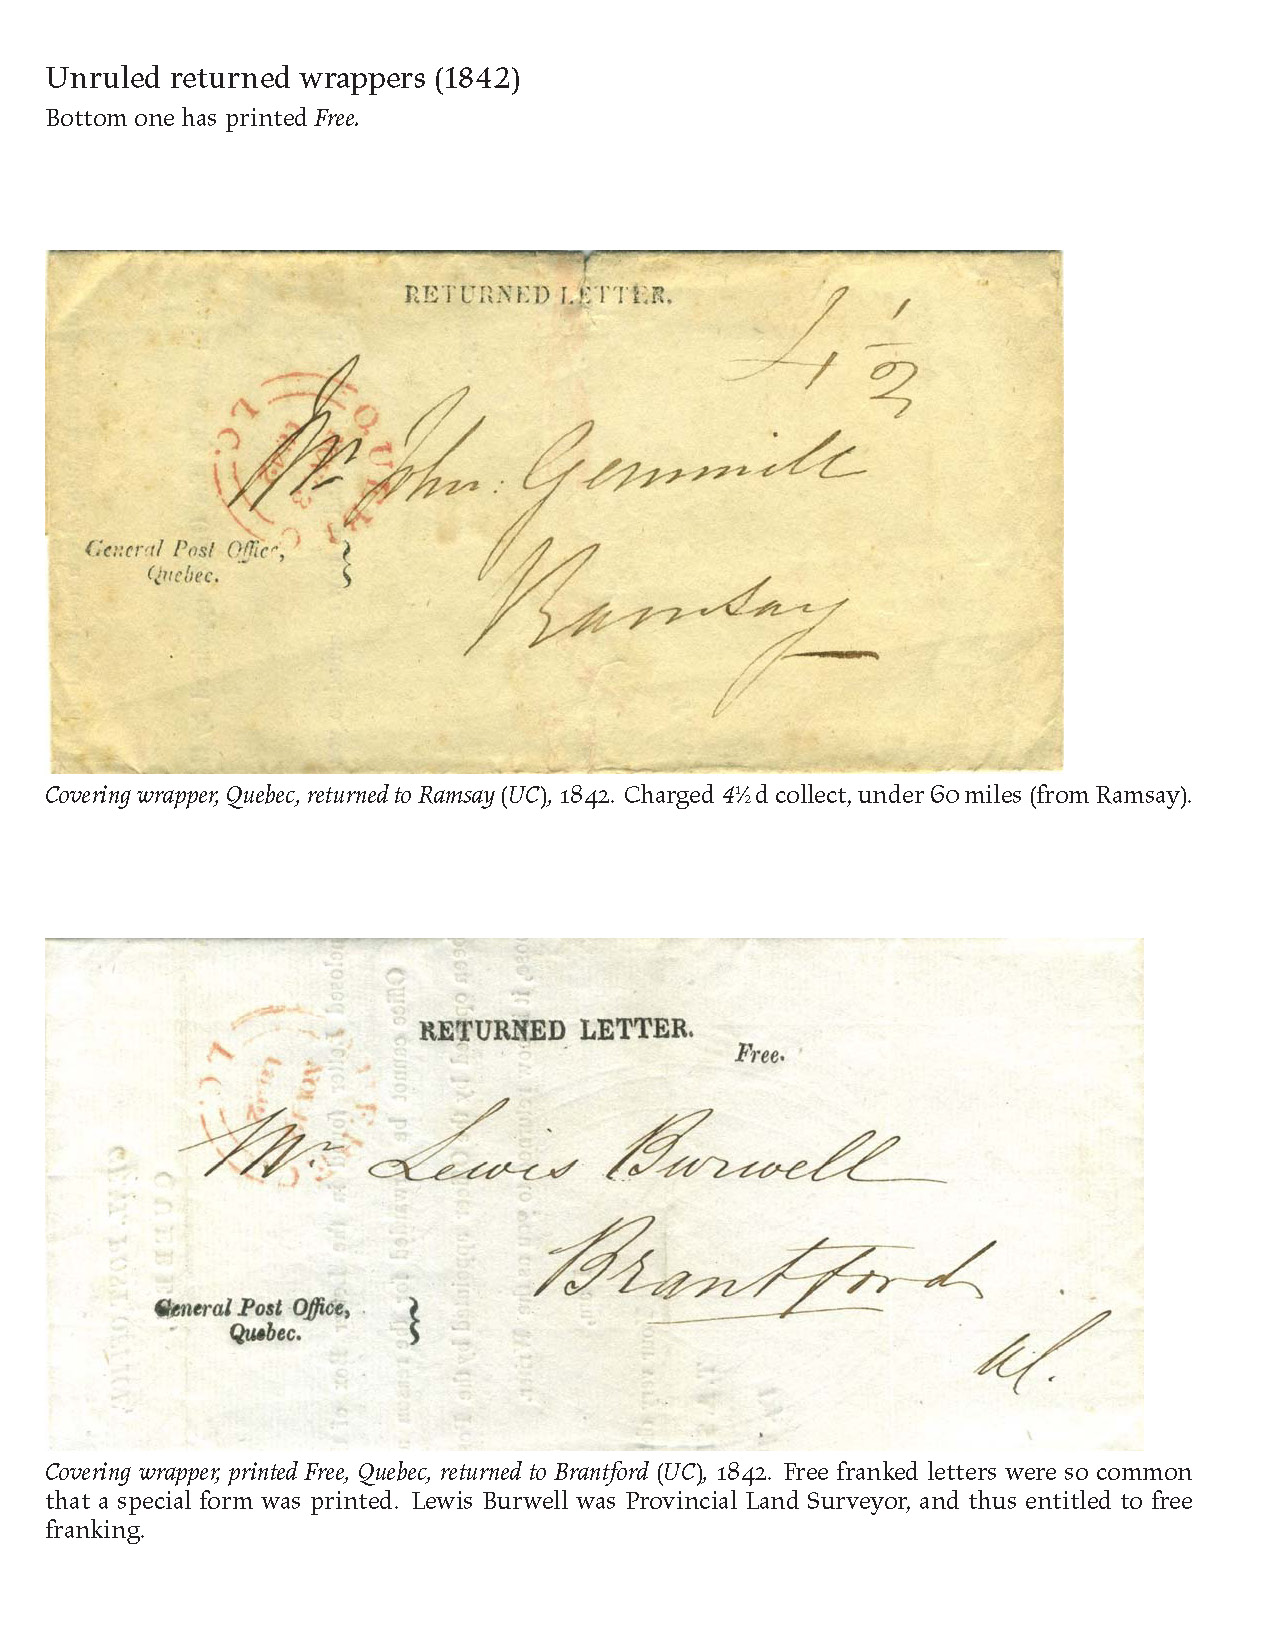 Unruled returned wrappers (1842)
Bottom one has printed Free.
RETURNED LETTER.
4 1/2
QUEBEC
L C
Mr John: Gemmill
General Post Office,
Quebec.
Ramsay
Covering wrapper, Quebec, returned to Ramsay (UC), 1842. Charged 4½d collect, under 60 miles (from Ramsay).
RETURNED LETTER.
Free.
L C
Mr Lewis Burwell
Brantford
General Post Office,
Quebec.
Covering wrapper, printed Free, Quebec, returned to Brantford (UC), 1842. Free franked letters were so common
that a special form was printed. Lewis Burwell was Provincial Land Surveyor, and thus entitled to free
franking.